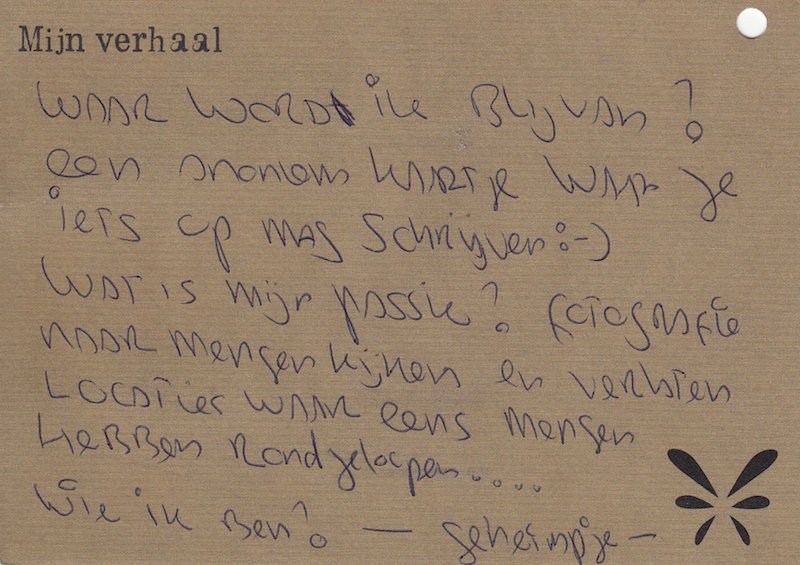 Mijn verhaal
WAAR WORD ik BLIJ VAN?
een anoniem KAARTje WAAR je
iets op mag Schrijven :-)
WAT is mijn passie? fotografie
NAAR mensen kijken en verlaten
LOCATies WAAR eens mensen
HEBBEN Rondgelopen....
Wie ik Ben? — geheimpje —